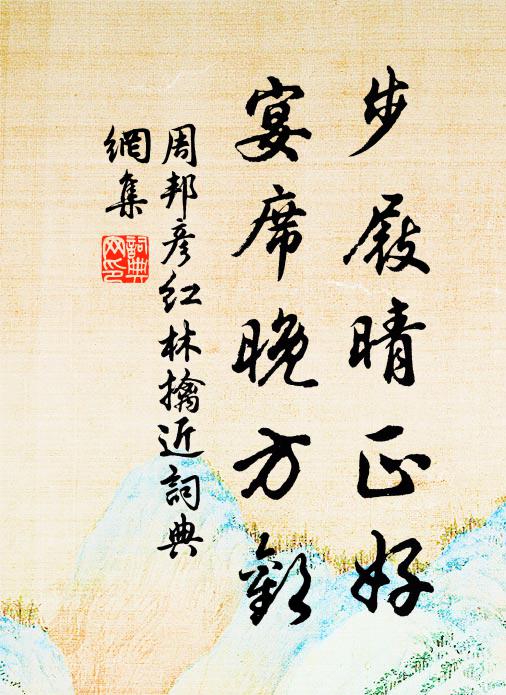 步屐晴正好
宴席晚方歡
周邦彥紅林擒近詞典
網集
詞典
网印